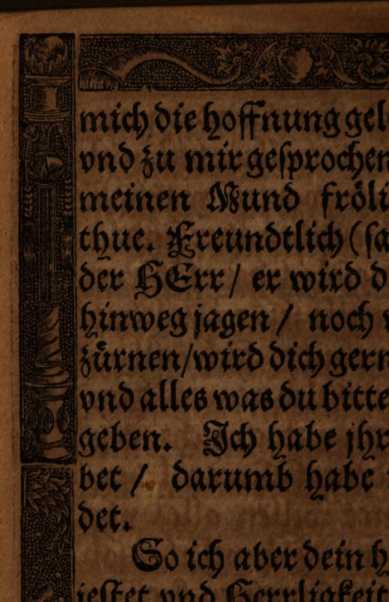 mich die hoffnung gel
vnd zu mir gesprochen
meinen Mund fröli
thue. Freundtlich (sa
der HErr / er wird d
hinweg jagen / noch
zürnen/wird dich gern
vnd alles was du bitte
geben. Ich habe jhr
bet / darumb habe
det.
So ich aber dein h
jestet vnd Herrligkeit